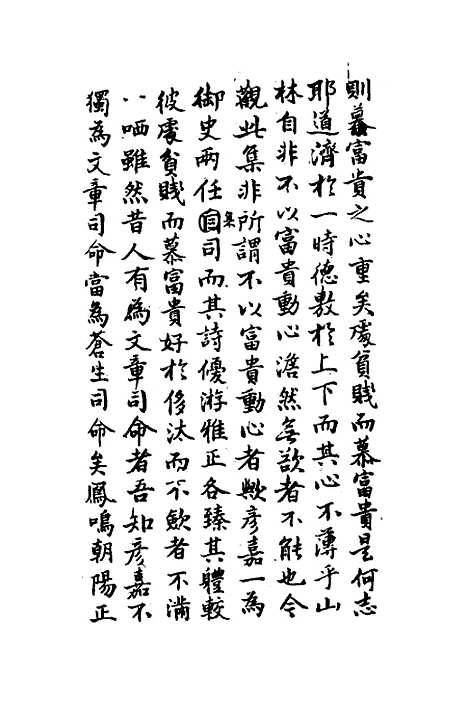 則慕富貴之心重矣處貧賤而慕富貴是何志
耶道濟於一時德敷於上下而其心不薄乎山
林自非不以富貴動心澹然無欲者不能也今
觀此集非所謂不以富貴動心者歟彥嘉一為
御史兩任司而其詩優游雅正各臻其體較
彼處貧賤而慕富貴好於侈汰而不斂者不滿
一哂雖然昔人有為文章司命者吾知彥嘉不
獨為文章司命當為蒼生司命矣鳳鳴朝陽正